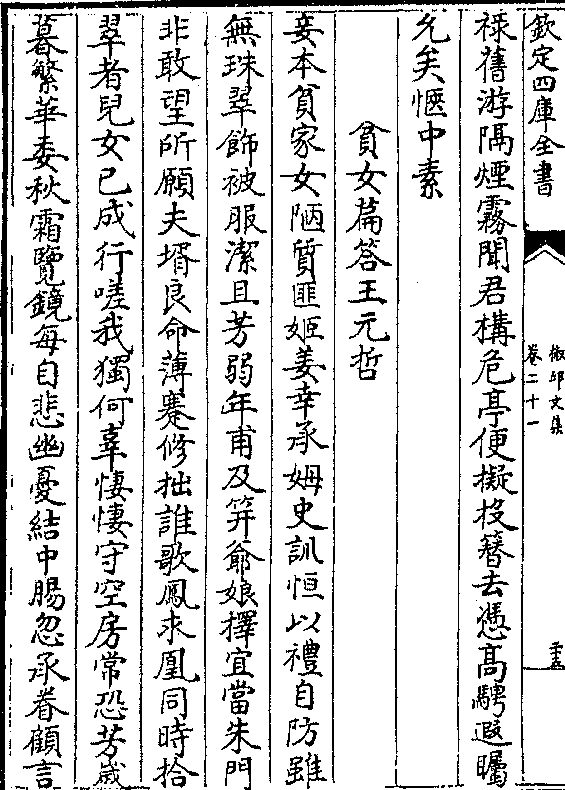 欽定四庫全書
椒邱文集
卷二十一
二十五
祿舊游隔煙霧聞君構危亭便擬投簪去憑高騁遐矚
允矣愜中素
貧女篇答王元哲
妾本貧家女陋質匪姬姜幸承姆史訓恒以禮自防雖
無珠翠飾被服潔且芳弱年甫及笄爺娘擇宜當朱門
非敢望所願夫壻良命薄蹇修拙誰歌鳳求凰同時拾
翠者兒女已成行嗟我獨何辜悽悽守空房常恐芳歲
暮繁華委秋霜覽鏡每自悲幽憂結中腸忽承眷顧言